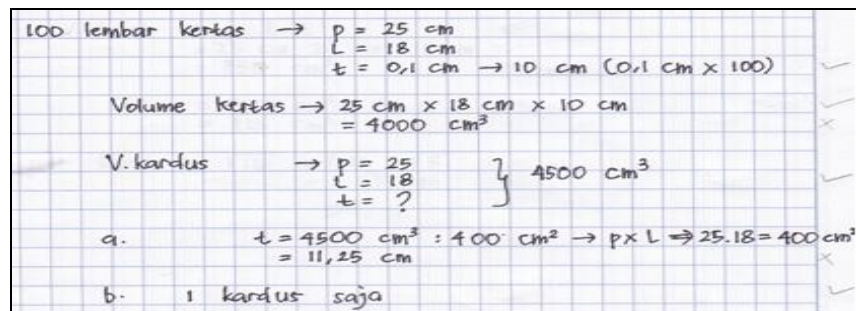 100 lembar kertas → p = 25 cm
L = 18 cm
t = 0,1 cm → 10 cm (0,1 cm x 100)
Volume kertas → 25 cm x 18 cm x 10 cm
= 4000 cm³
V. kardus → p = 25
L = 18 } 4500 cm³
t = ?
a. t = 4500 cm³ : 400 cm² → p x L ⇒ 25.18 = 400 cm²
= 11,25 cm
b. 1 kardus saja